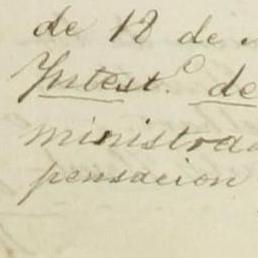 de 18 de
Yntest.º de
ministra
pensacion